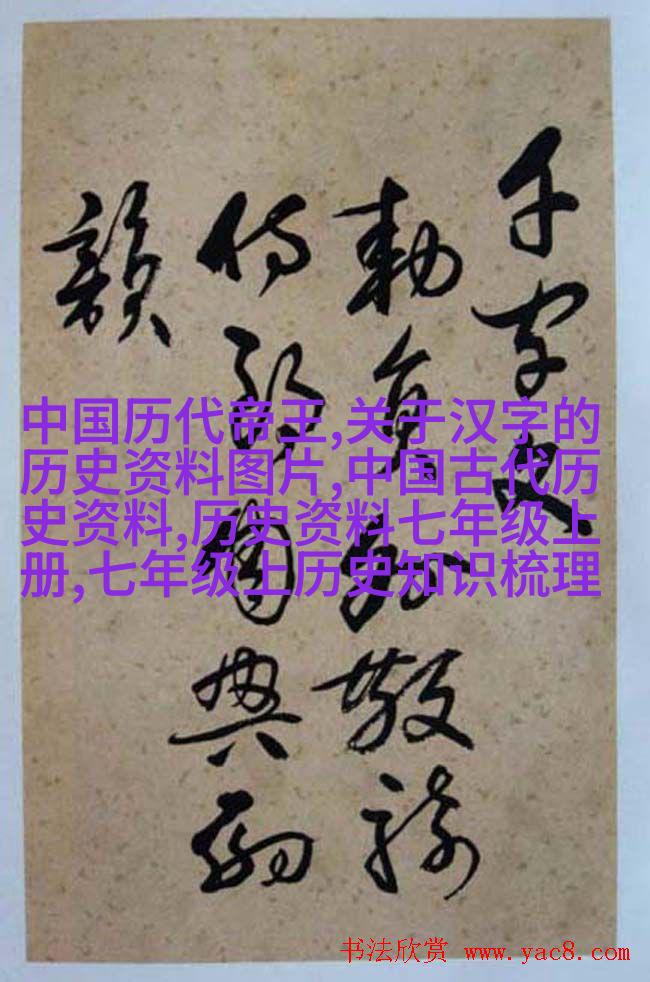 千字文
勅員外散騎
侍郎周興嗣
韻
中国历代帝王,关于汉字的
历史资料图片,中国古代历
史资料,历史资料七年级上
册,七年级上历史知识梳理
书法欣赏 www.yac8.com